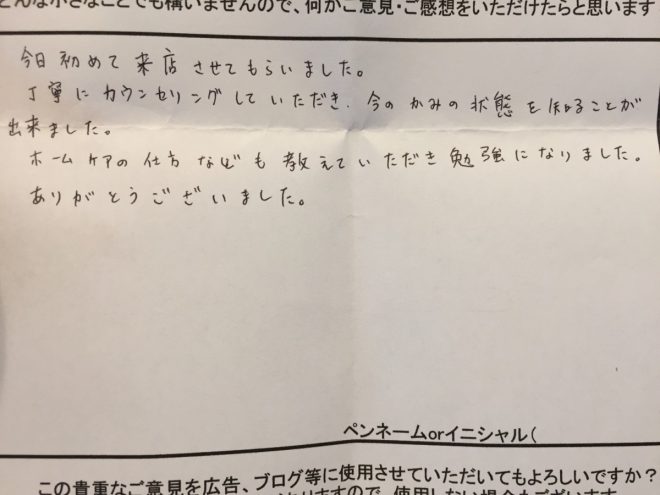 どんな小さなことでも構いませんので、何かご意見・ご感想をいただけたらと思います
今日初めて来店させてもらいました。
丁寧にカウンセリングしていただき、今のかみの状態を知ることが
出来ました。
ホームケアの仕方なども教えていただき勉強になりました。
ありがとうございました。
ペンネームorイニシャル(
この貴重なご意見を広告、ブログ等に使用させていただいてもよろしいですか？
ますので、使用しない場合も